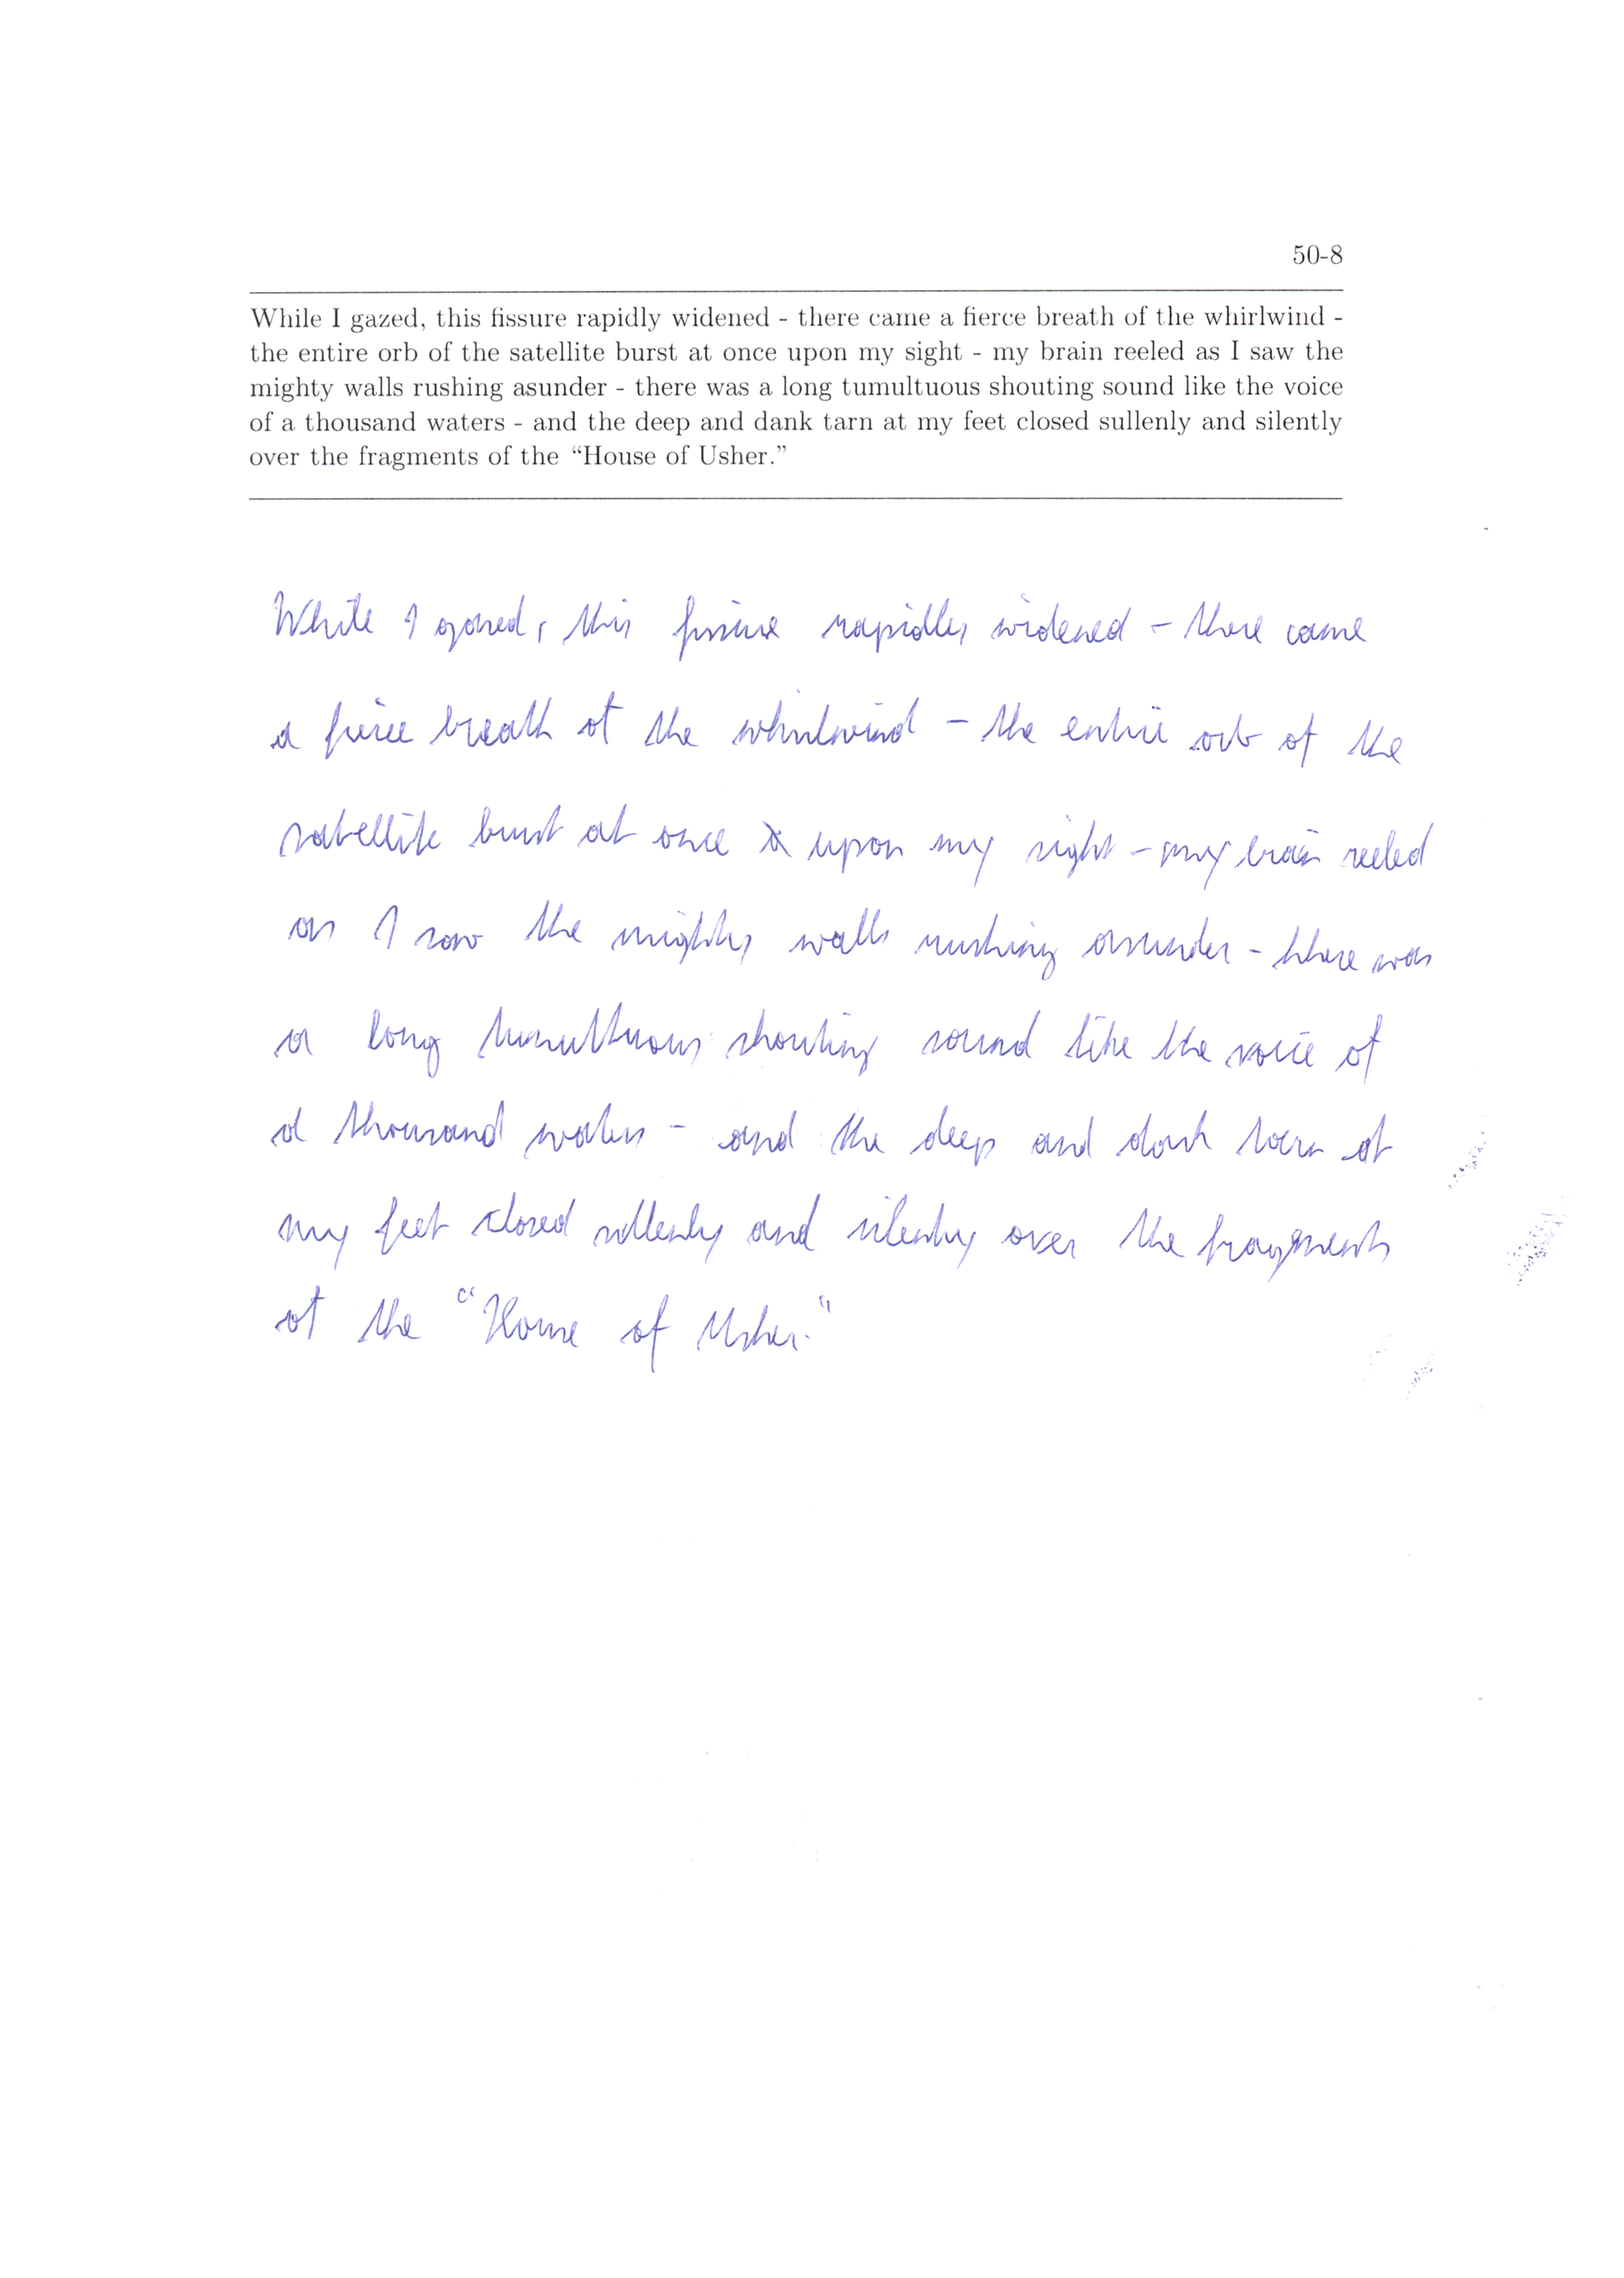 50-8
While I gazed, this fissure rapidly widened - there came a fierce breath of the whirlwind -
the entire orb of the satellite burst at once upon my sight - my brain reeled as I saw the
mighty walls rushing asunder - there was a long tumultuous shouting sound like the voice
of a thousand waters - and the deep and dank tarn at my feet closed sullenly and silently
over the fragments of the “House of Usher.”
While I gazed, this fissure rapidly widened - there came
a fierce breath of the whirlwind - the entire orb of the
satellite burst at once upon my sight - my brain reeled
as I saw the mighty walls rushing asunder - there was
a long tumultuous shouting sound like the voice of
a thousand waters - and the deep and dank tarn at
my feet closed sullenly and silently over the fragments
of the “House of Usher.”